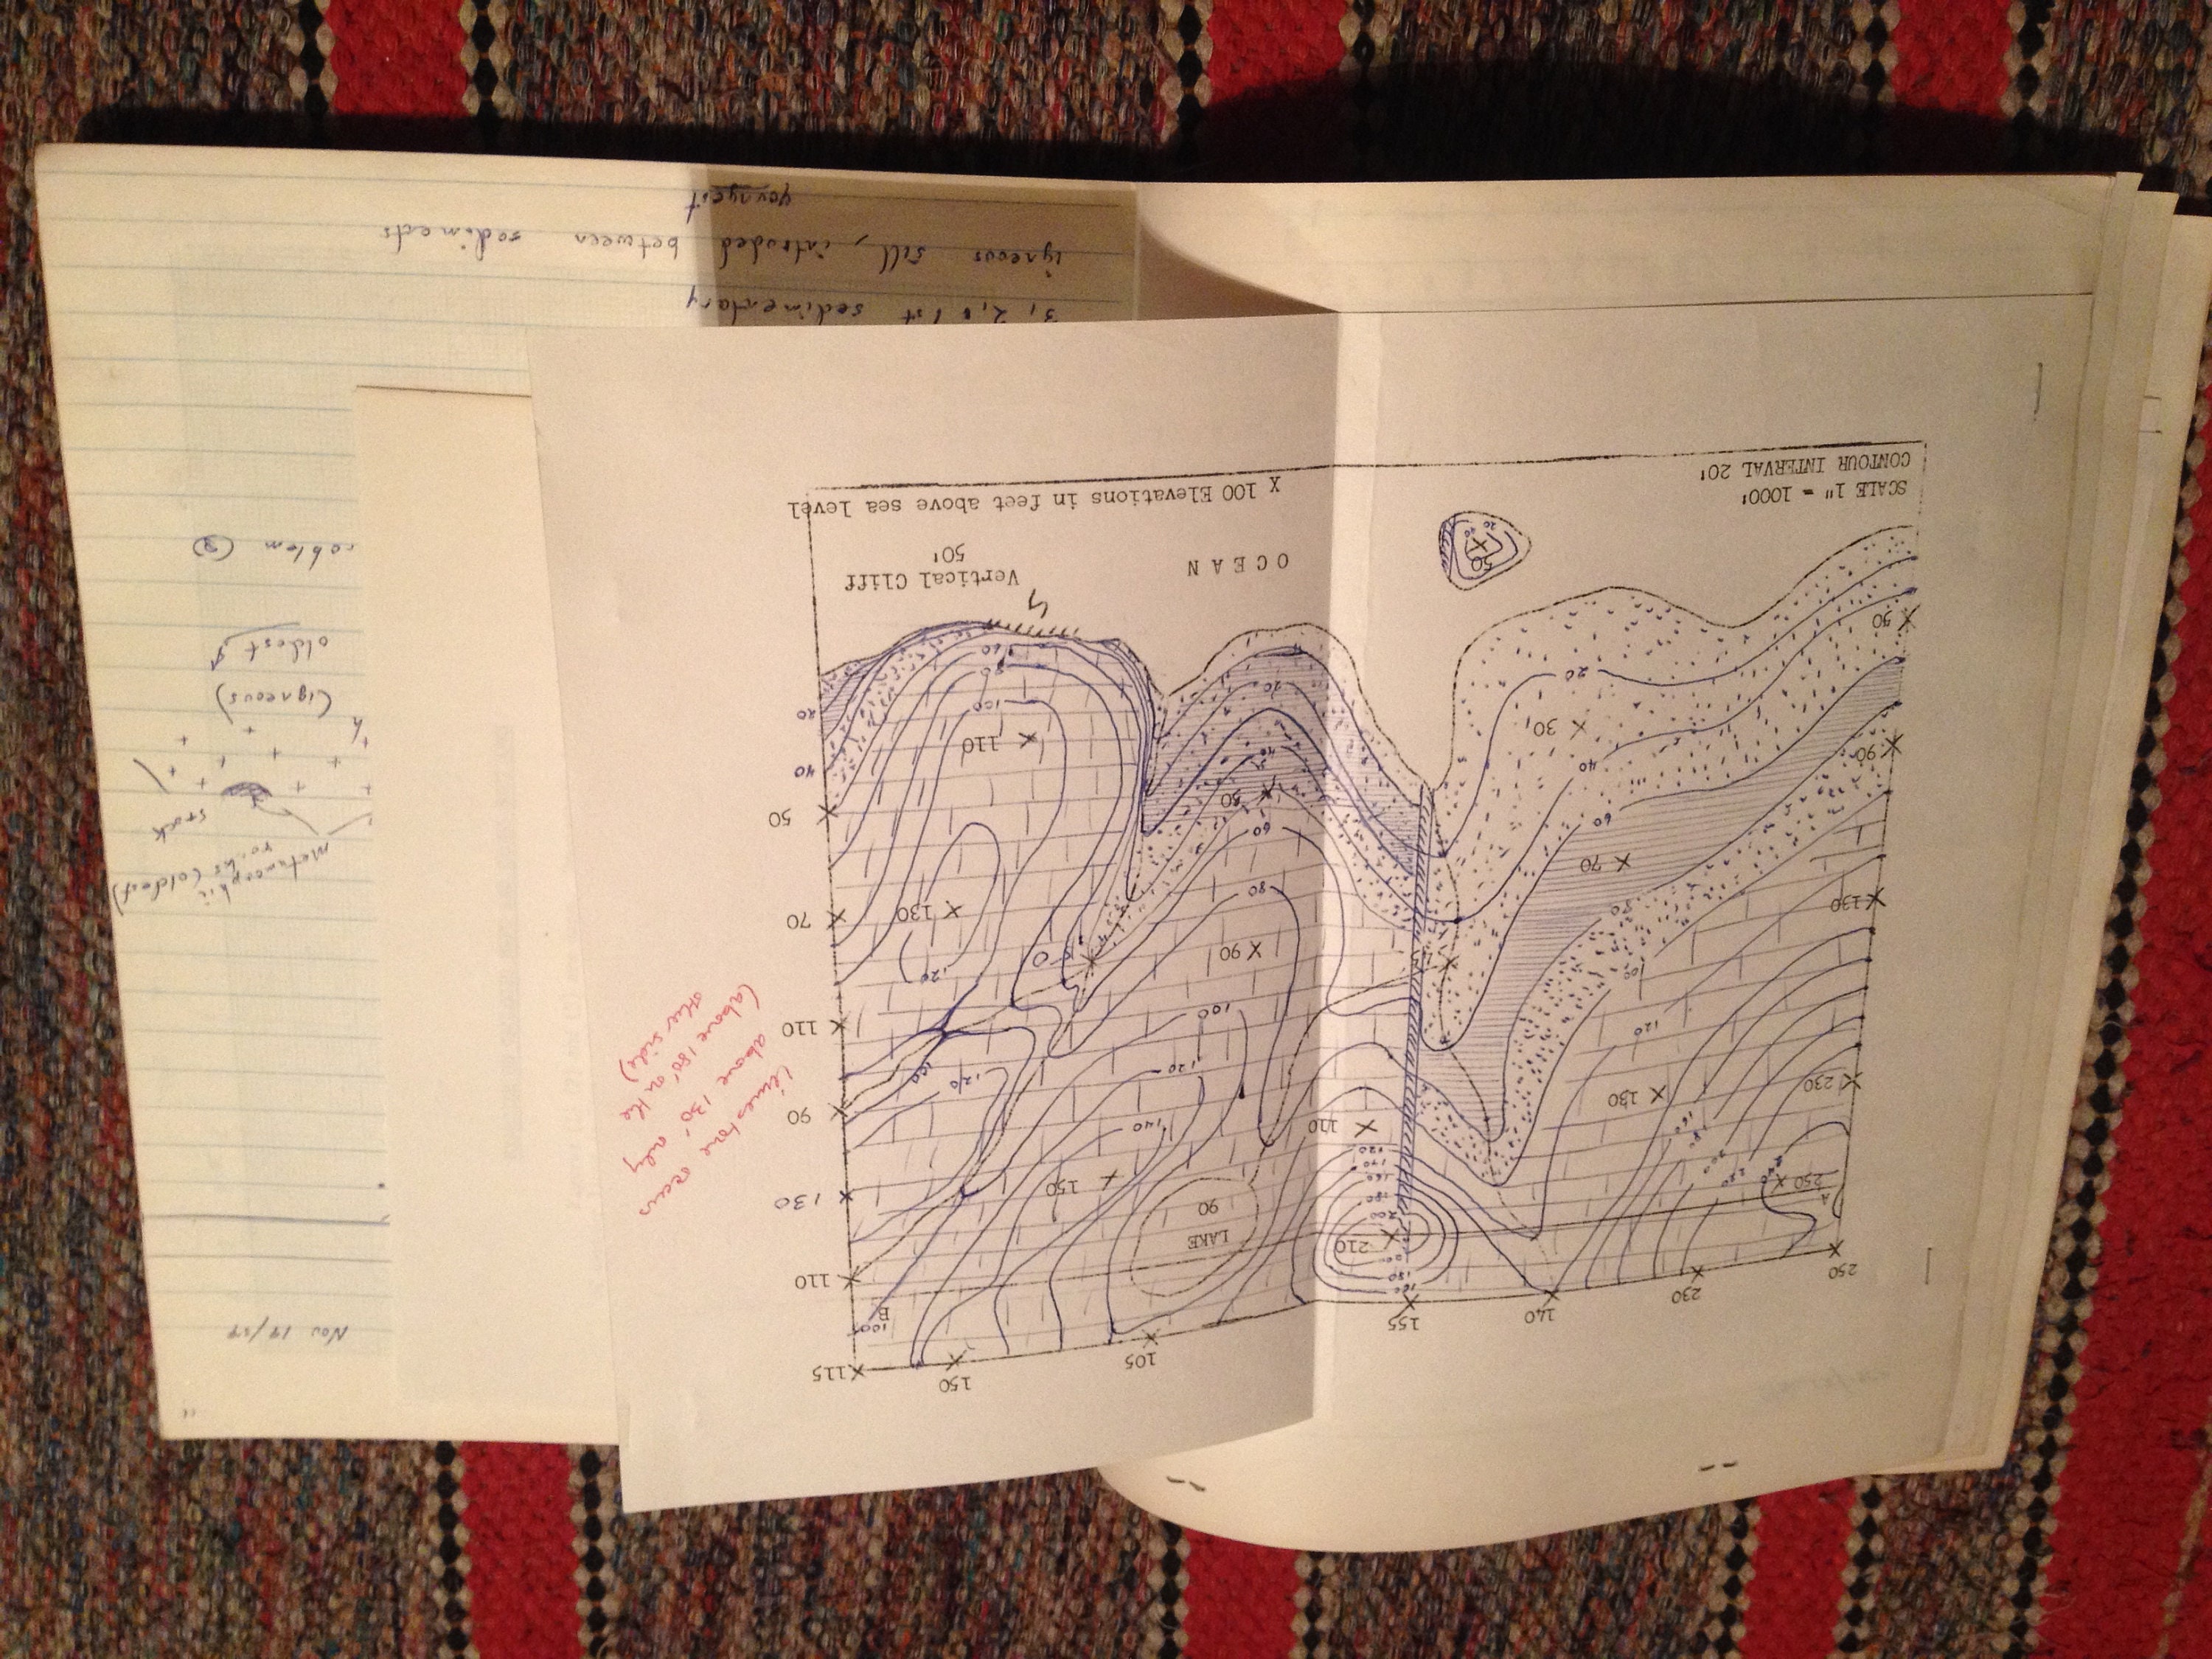 250
230
140
155
105
150
X115
A
250
X 210
LAKE
90
B
100
110
230
130
110
150
140
130
120
100
120
120
100
90
130
100
X 90
0
120
110
130
80
80
X 130
70
70
60
60
50
50
90
40
40
30
20
20
110
100
80
60
40
20
50
50
OCEAN
Vertical Cliff
50'
SCALE 1" = 1000'
CONTOUR INTERVAL 20'
X 100 Elevations in feet above sea level
limestone occurs
above 130' only
(above 180' on the
other side)
Nov
metamorphic
rocks (oldest)
stock
(igneous)
oldest
oblem (2)
3, 2, 1st sedimentary
igneous sill, intruded between sediments
youngest